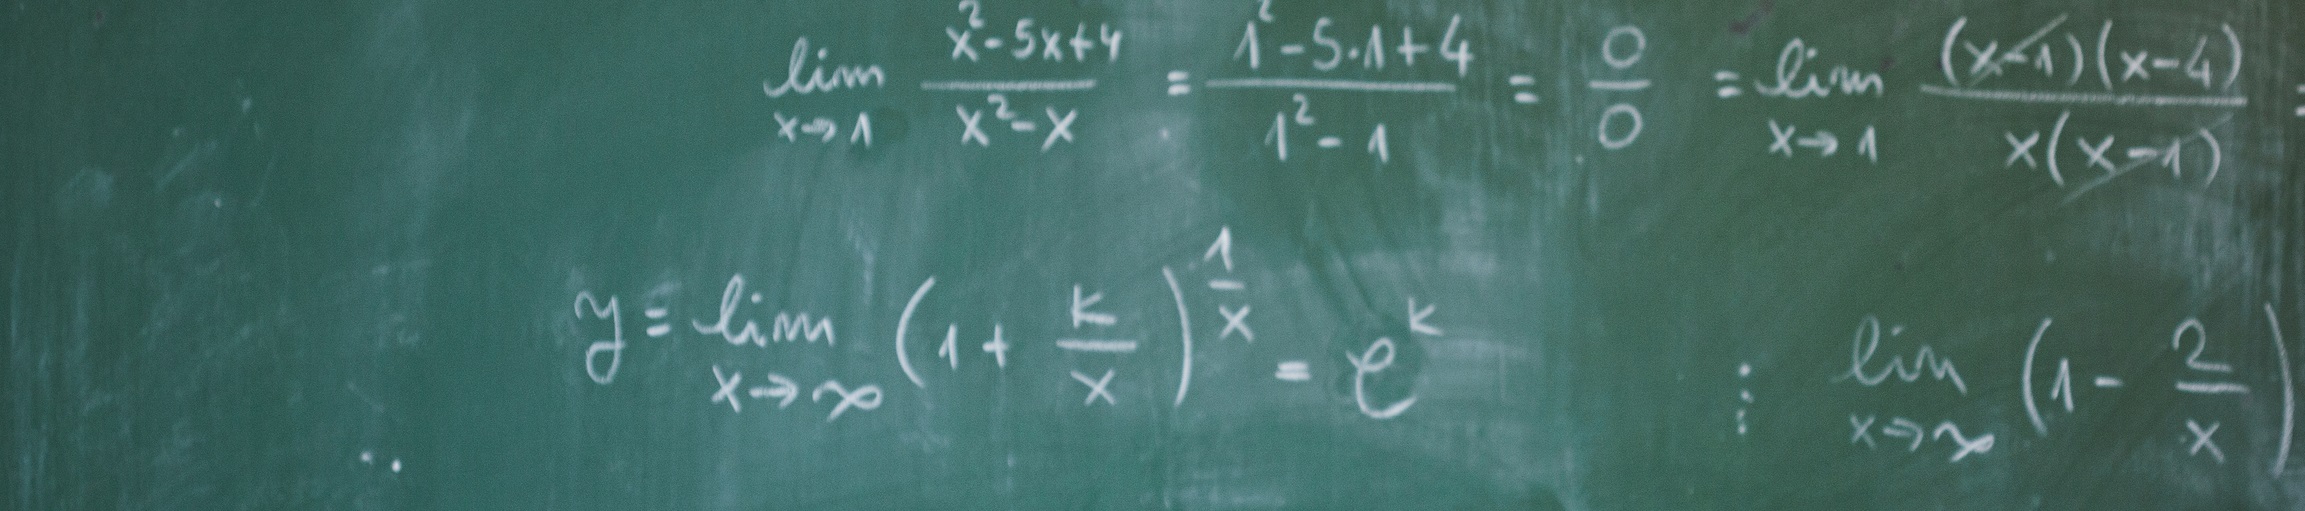 lim x→1 (x²-5x+4)/(x²-x) = (1²-5·1+4)/(1²-1) = 0/0 = lim x→1 ((x-1)(x-4))/(x(x-1)) =
y = lim x→∞ (1+k/x)^(1/x) = e^k ⋮ lim x→∞ (1-2/x)